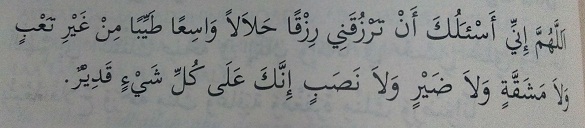 اَللَّهُمَّ إِنِّي أَسْئَلُكَ أَنْ تَرْزُقَنِي رِزْقًا حَلَالاً وَاسِعًا طَيِّبًا مِنْ غَيْرِ تَعْبٍ
وَلاَ مَشَقَّةٍ وَلاَ ضَيْرٍ وَلاَ نَصَبٍ إِنَّكَ عَلَى كُلِّ شَيْءٍ قَدِيْرٌ.